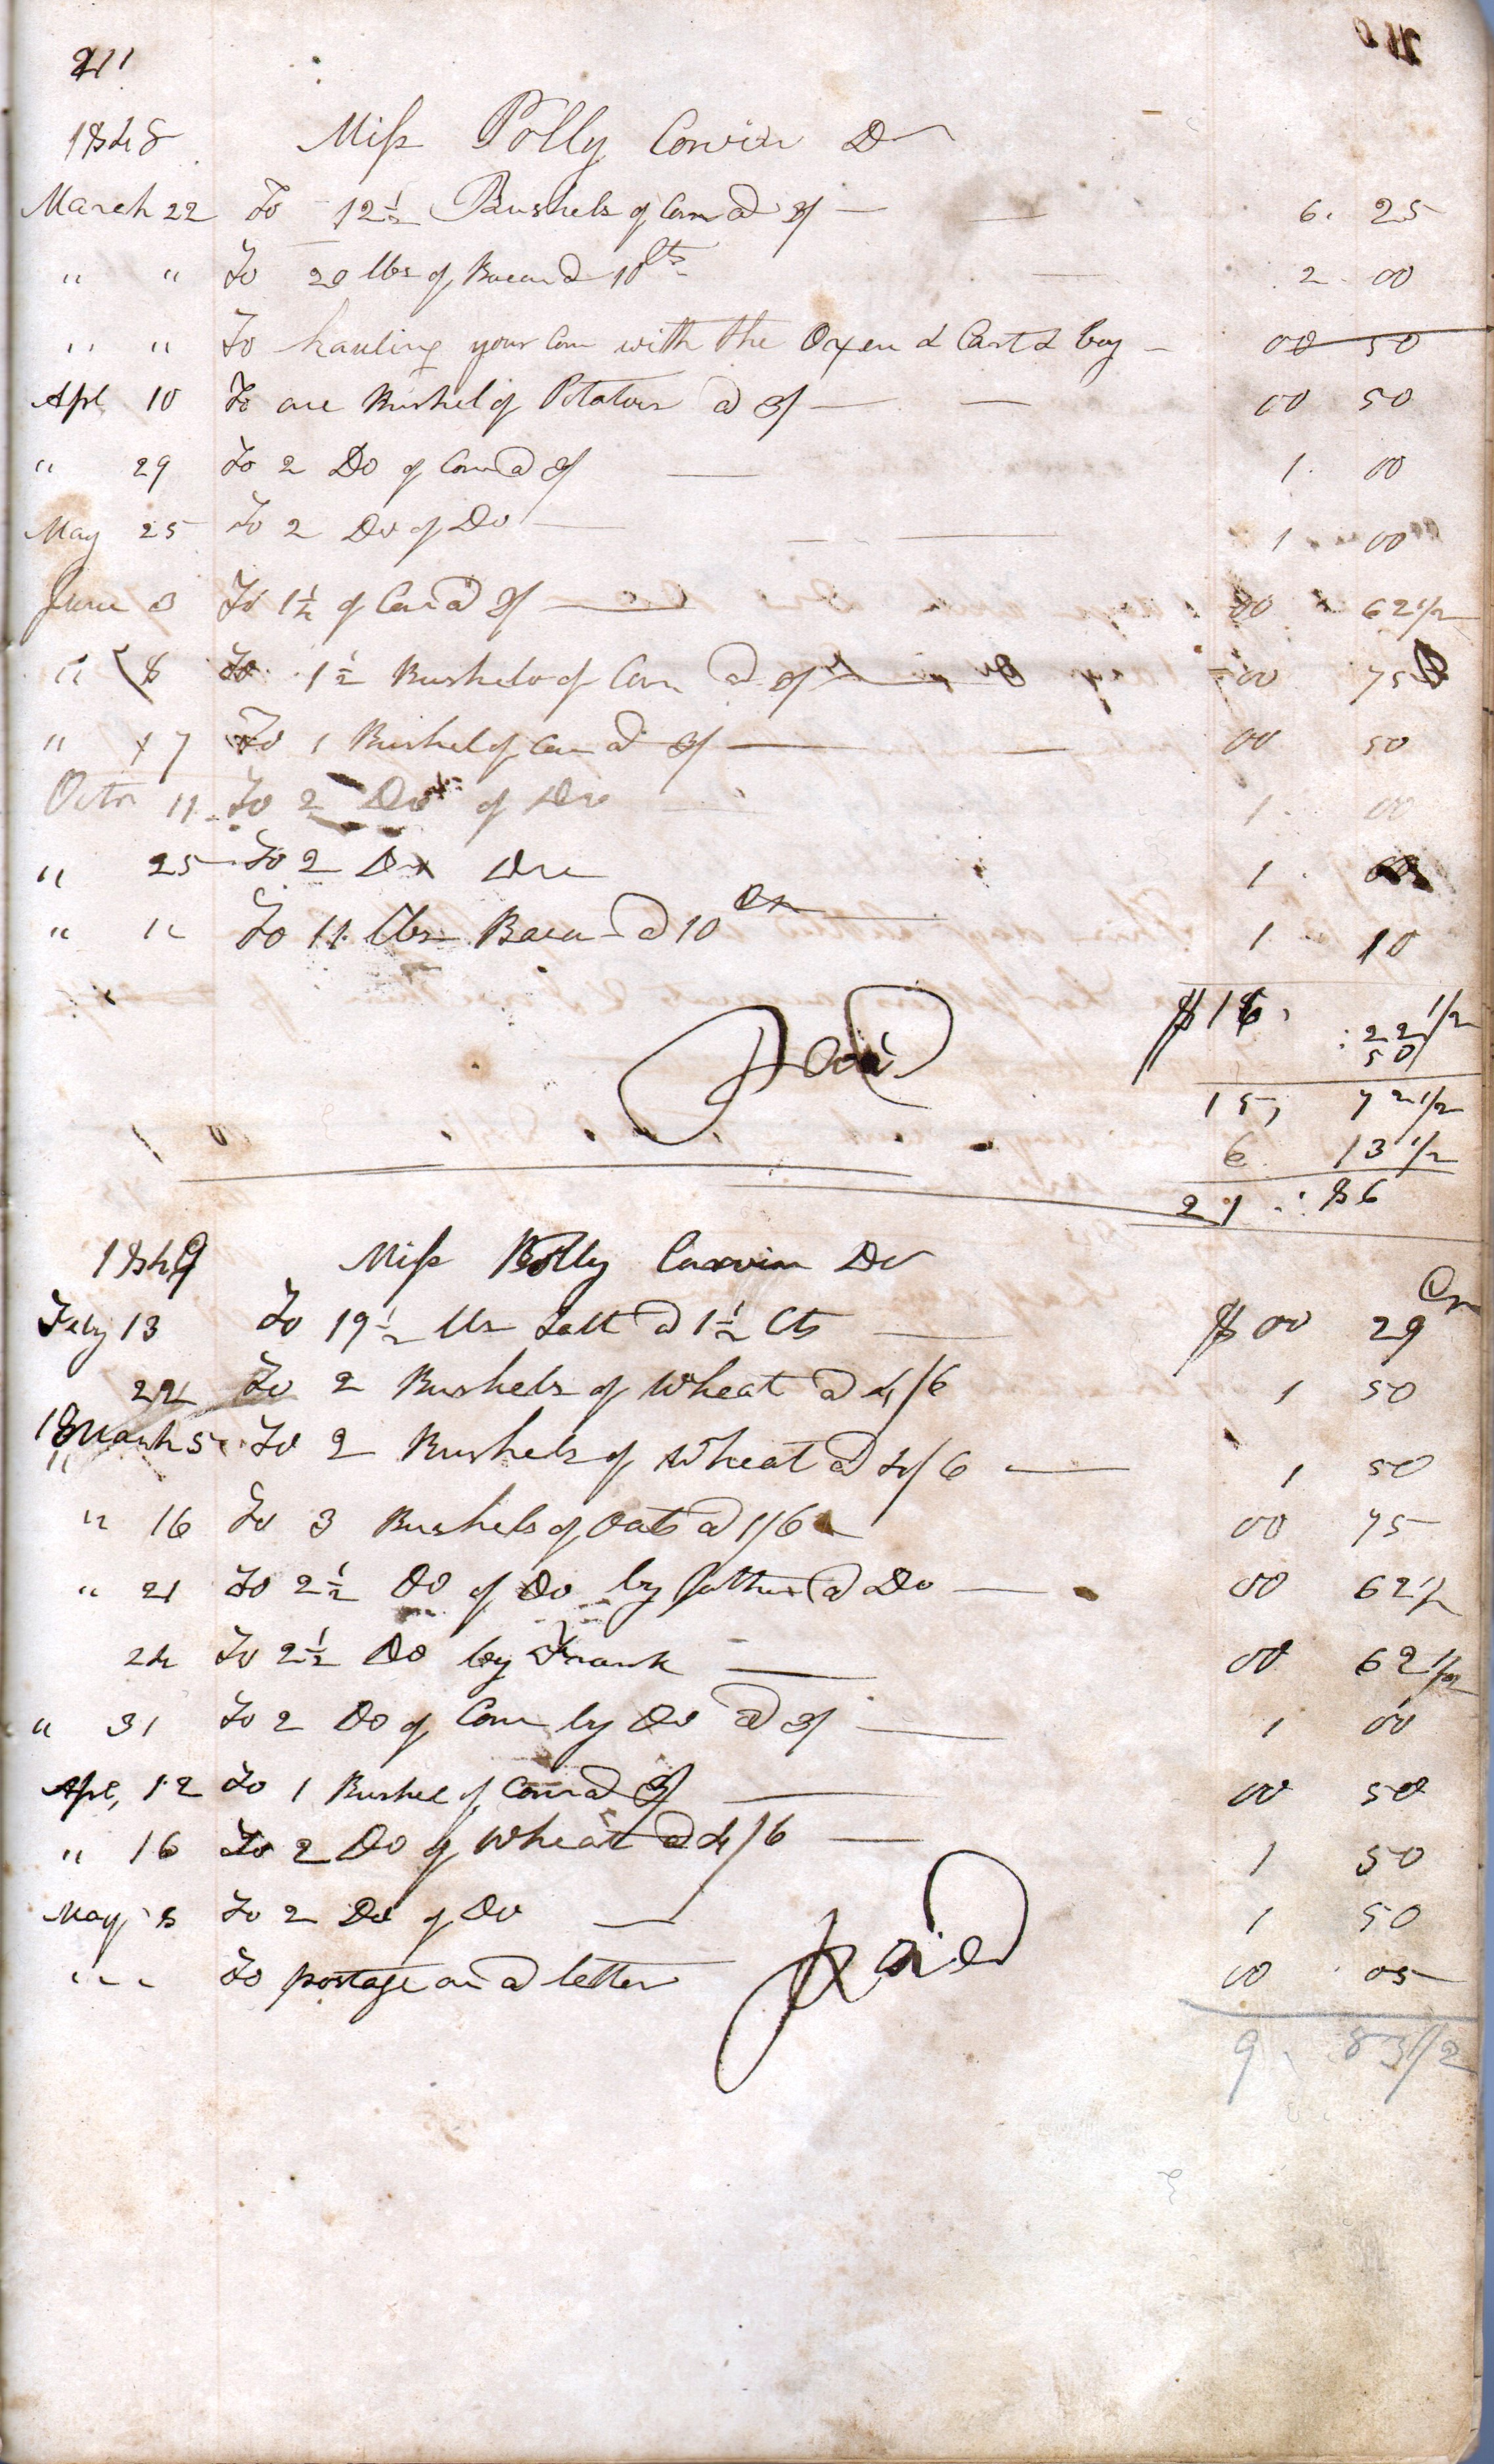 211
1848 Miss Polly Corwin Dr
March 22 To 12½ Bushels of Corn @ 3/ — — 6. 25
" " To 20 lbs of Bacon @ 10 Cts — 2. 00
" " To hauling your Corn with the Oxen & Cart & boy — 00 50
Apl 10 To one Bushel of Potatoes @ 3/ — — 00 50
" 29 To 2 Do of Corn @ 3/ — 1. 00
May 25 To 2 Do of Do — — 1 00
June 3 To 1¼ of Corn @ 3/ — 00 62 1/2
" 8 To 1½ Bushels of Corn @ 3/ — 00 75
" 17 To 1 Bushel of Corn @ 3/ — — 00 50
Octr 11 To 2 Do of Do 1. 00
" 25 To 2 Do Do 1. 00
" " To 11 lbs Bacon @ 10 Cts — 1. 10
$16. 22 1/2
50
Paid
15, 72 1/2
6 13 1/2
21 : 86
1849 Miss Polly Corwin Dr
Cr
Feby 13 To 19½ lbs Salt @ 1½ Cts — $ 00 29
22 To 2 Bushels of Wheat @ 4/6 1 50
March 5 To 2 Bushels of Wheat @ 4/6 — 1 50
" 16 To 3 Bushels of Oats @ 1/6 00 75
" 21 To 2½ Do of Do by father @ Do — 00 62 1/2
24 To 2½ Do by Frank — 00 62 1/2
" 31 To 2 Do of Corn by Do @ 3/ — 1 00
Apl, 12 To 1 Bushel of Corn @ 3/ — 00 50
" 16 To 2 Do of Wheat @ 4/6 — 1 50
May 8 To 2 Do of Do — 1 50
" " To postage on a letter 00 . 05
paid
9. 83 1/2